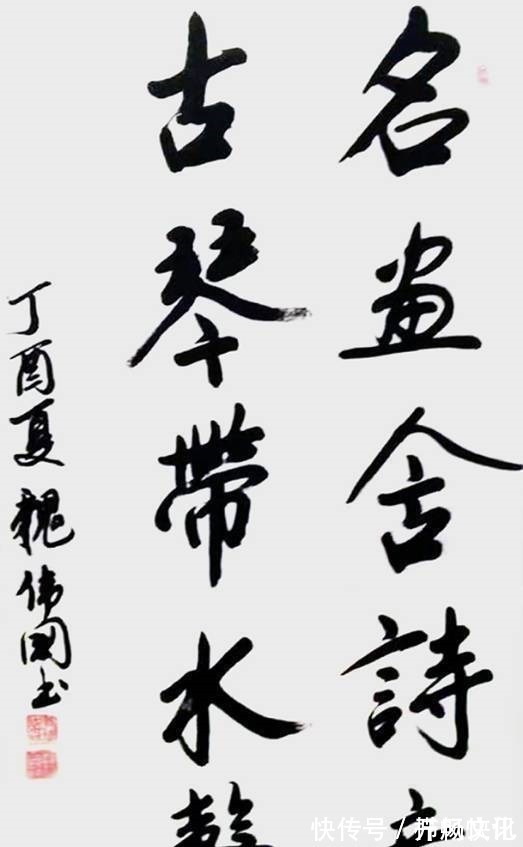 名畫含詩
古琴帶水聲
丁酉夏 魏伟國书
快传号 /